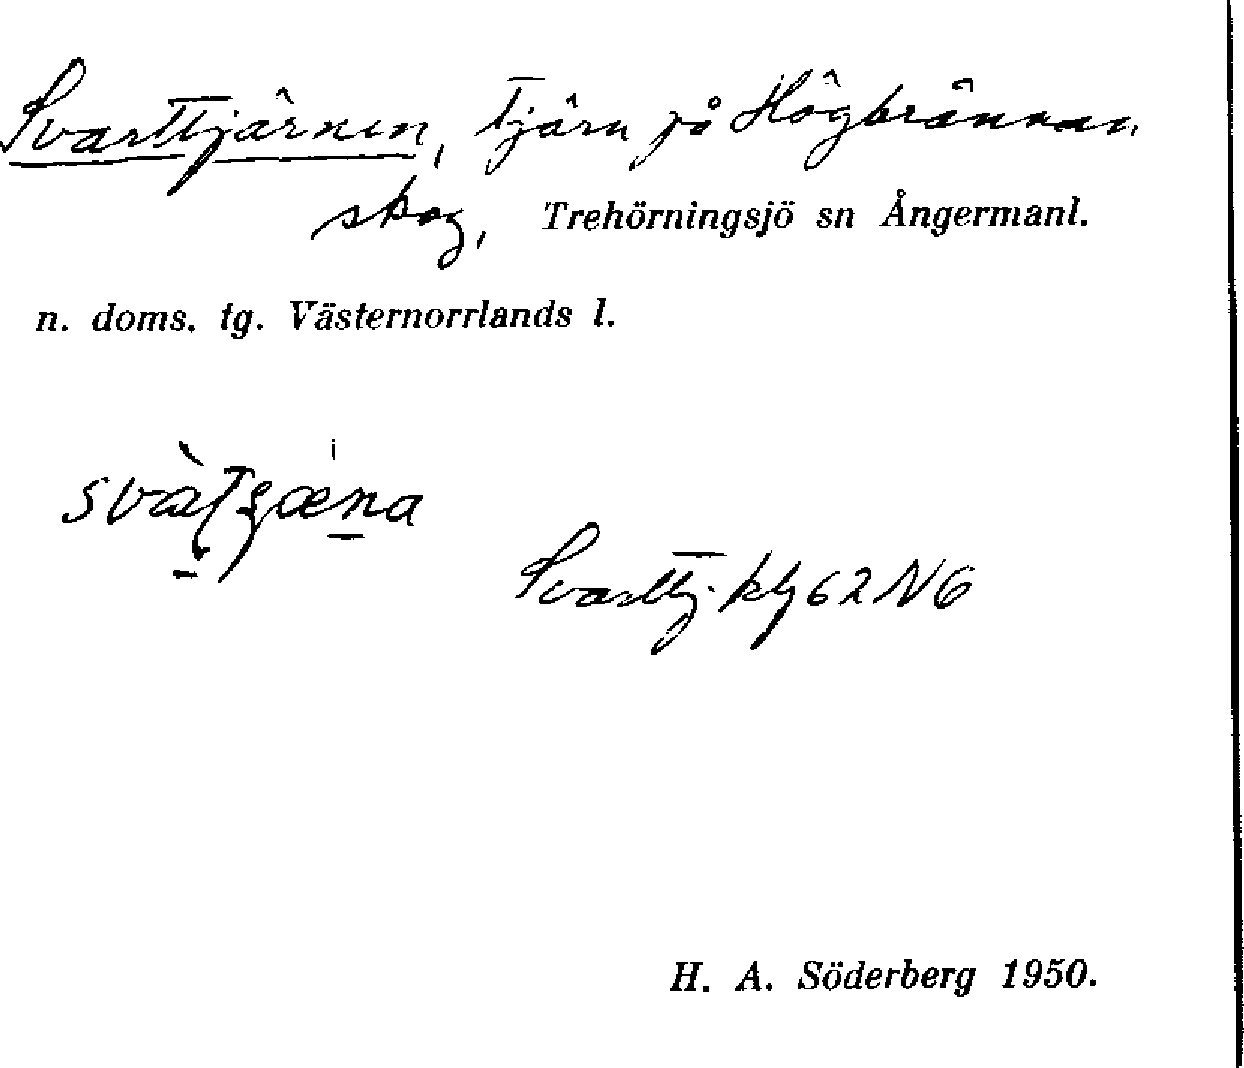 Svarttjärnen, tjärn på Högbrännan
skog, Trehörningsjö sn Ångermanl.
n. doms. tg. Västernorrlands l.
Svarttj. kbl 62 NG
H. A. Söderberg 1950.